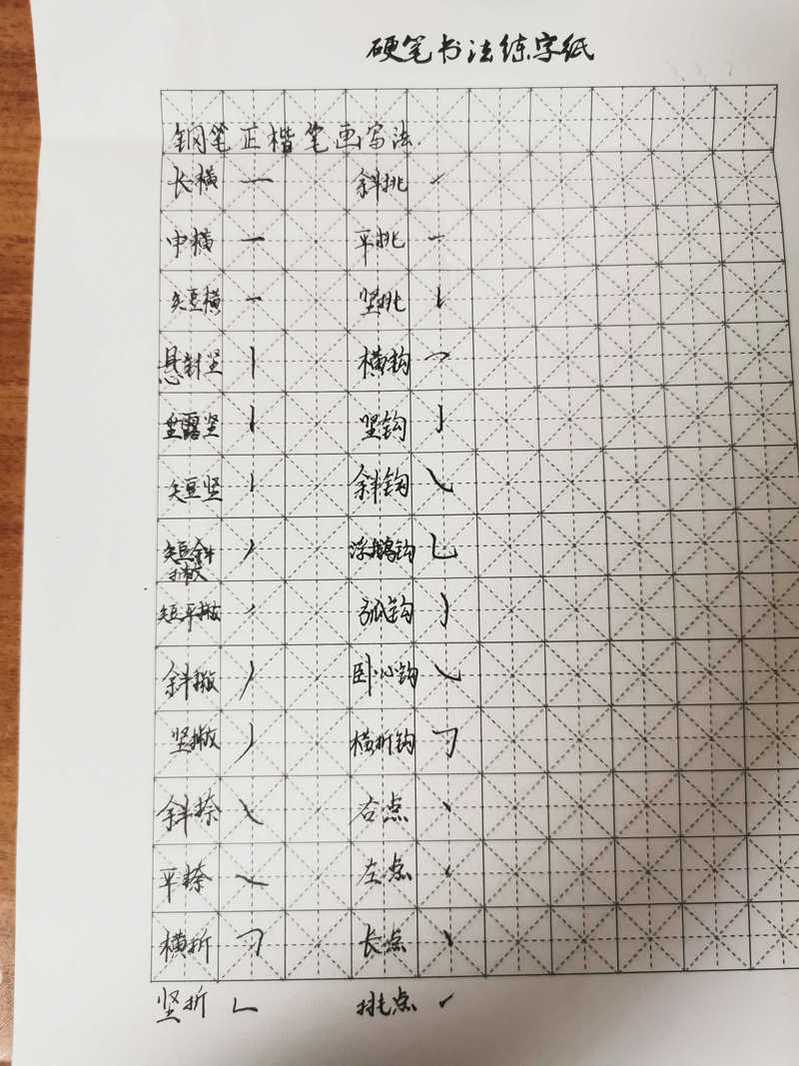 硬笔书法练字纸
钢笔正楷笔画写法.
长横 斜挑
中横 平挑
短横 竖挑
悬针竖 横钩
垂露竖 竖钩
短竖 斜钩
短斜撇 浮鹅钩
短平撇 弧钩
斜撇 卧心钩
竖撇 横折钩
斜捺 右点
平捺 左点
横折 长点
竖折 挑点